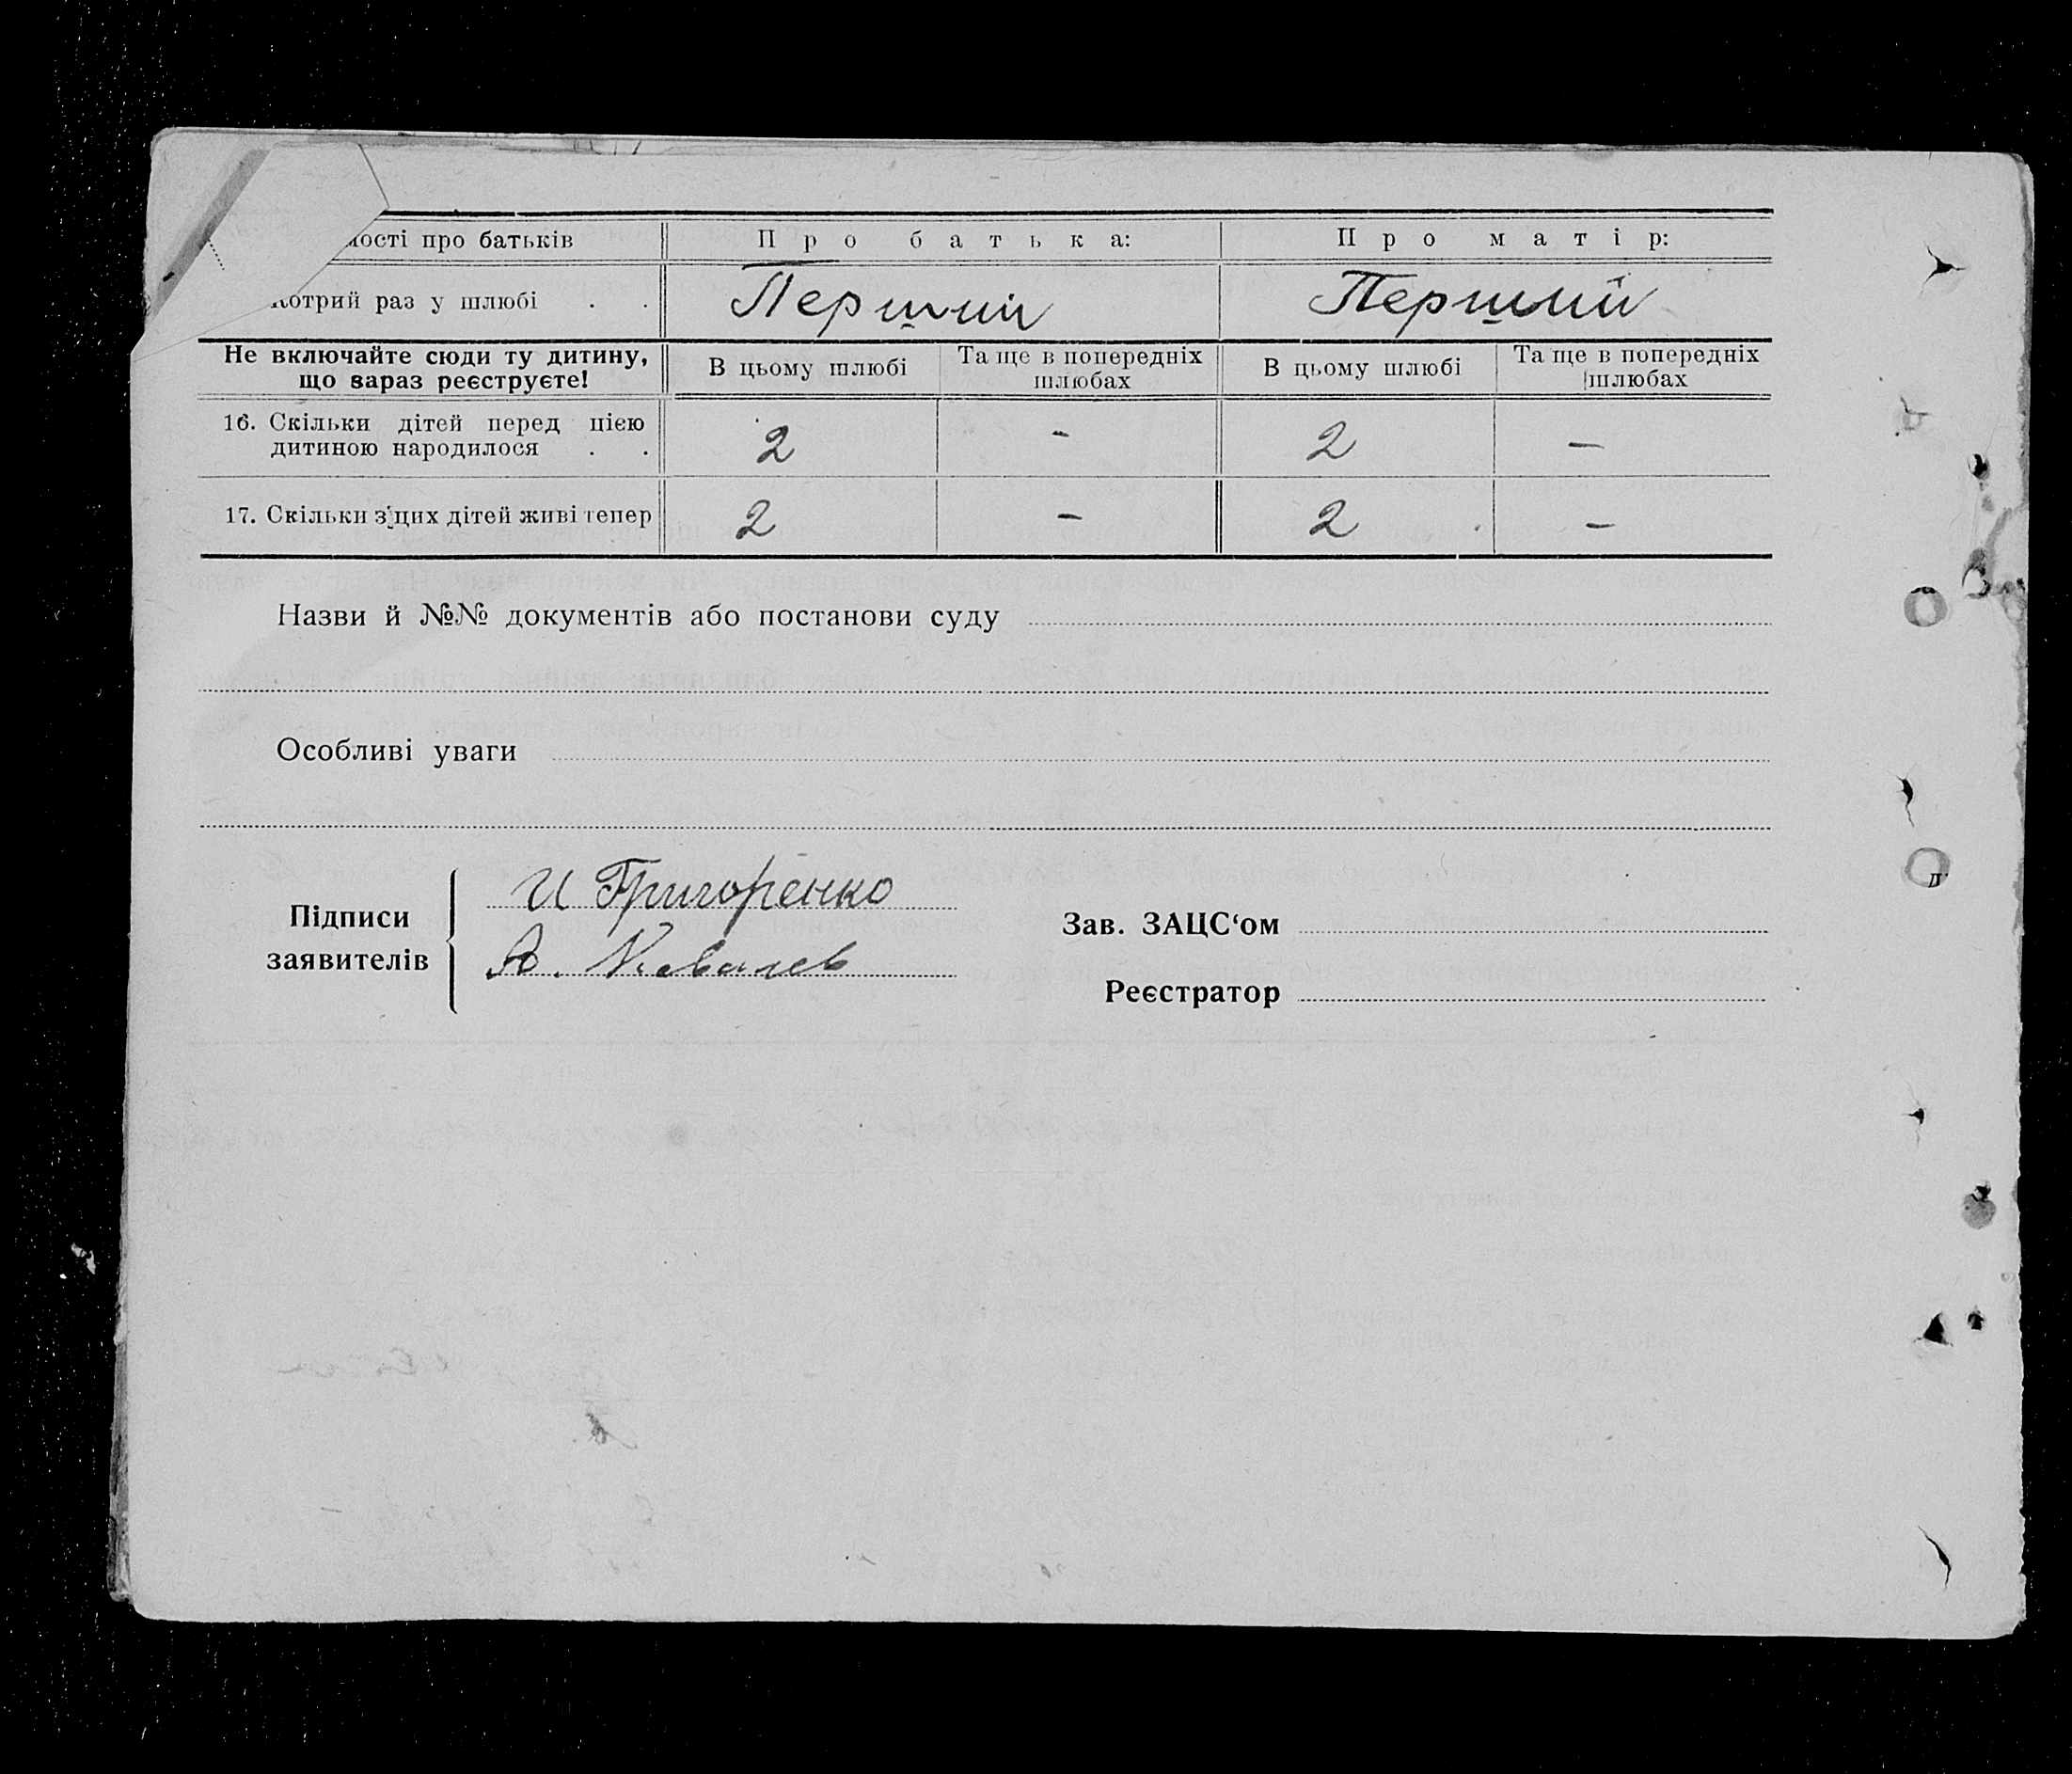 ності про батьків Про батька: Про матір:
Котрий раз у шлюбі . . Перший Перший
Не включайте сюди ту дитину, що зараз реєструєте! В цьому шлюбі Та ще в попередніх шлюбах В цьому шлюбі Та ще в попередніх шлюбах
16. Скільки дітей перед цією
дитиною народилося . . 2 - 2 —
17. Скільки з'цих дітей живі тепер 2 - 2 —
Назви й №№ документів або постанови суду
Особливі уваги
Підписи заявителів
И Григоренко
А. Ковалев
Зав. ЗАЦС‘ом
Реєстратор